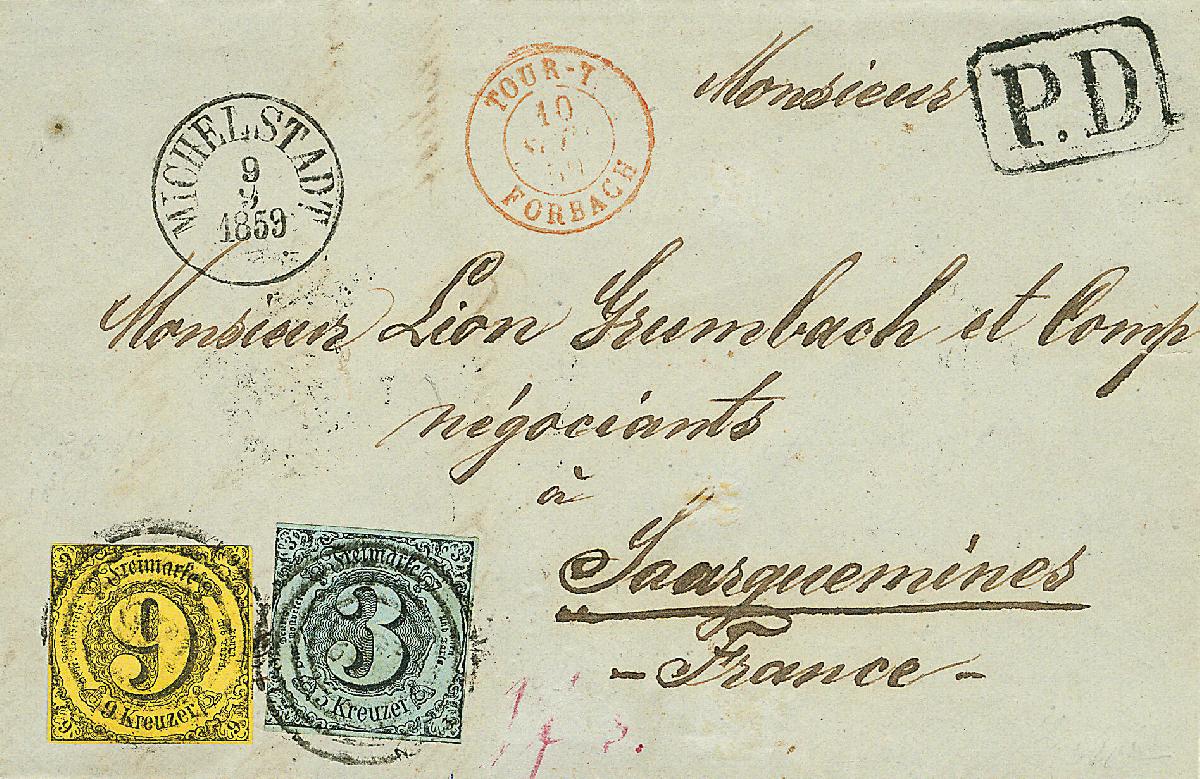 MICHELSTADT
9
9
1859
TOUR-T.
10
FORBACH
Monsieur
P.D.
Monsieur Lion Grumbach et Comp
négociants
à
Saarguemines
- France -
Freimarke
9
9 Kreuzer
Freimarke
3
3 Kreuzer